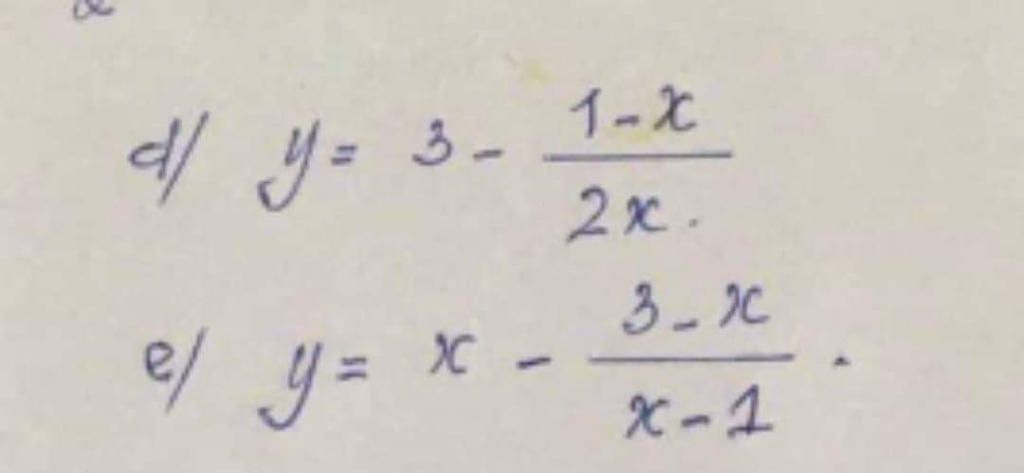 d/ y = 3 - \frac{1-x}{2x}.
e/ y = x - \frac{3-x}{x-1}.